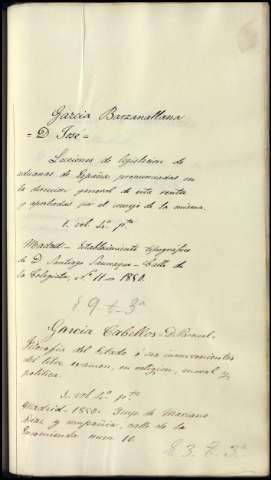 Garcia Barzanallana
= D. José =
Lecciones de legislacion de
aduanas de España pronunciadas en
la direccion general de esta renta
y aprobadas por el consejo de la misma.
1. vol. 4.º pta
Madrid - Establecimiento tipografico
de D. Santiago Saunaque - Calle de
la Colegiata, Nº 11 - 1880.
E. 9. t. 3ª
Garcia Cabellos - D. Manuel -
Filosofia del Estado ó sea inconvenientes
del libre examen, en religion, moral y
politica.
1. vol. 4º pta
Madrid - 1880 - Imp. de Mariano
Diaz y compañia, calle de la
Encomienda num 10.
E. 3. t. 3ª